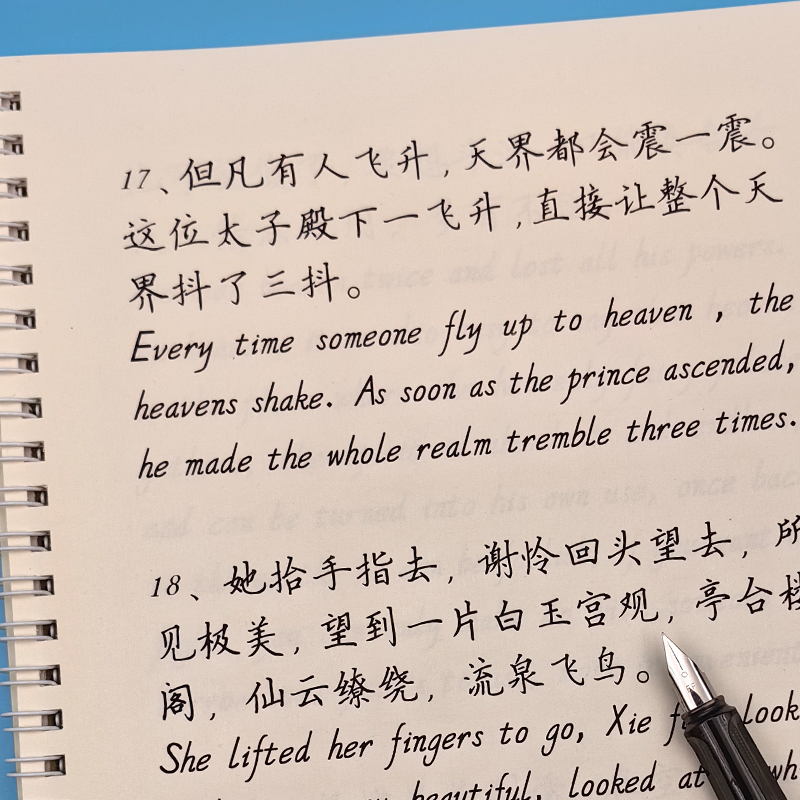 17、但凡有人飞升,天界都会震一震。
这位太子殿下一飞升,直接让整个天
界抖了三抖。
Every time someone fly up to heaven , the
heavens shake. As soon as the prince ascended,
he made the whole realm tremble three times.
18、她抬手指去,谢怜回头望去,所
见极美,望到一片白玉宫观,亭台楼
阁,仙云缭绕,流泉飞鸟。
She lifted her fingers to go, Xie look
beautiful, looked at